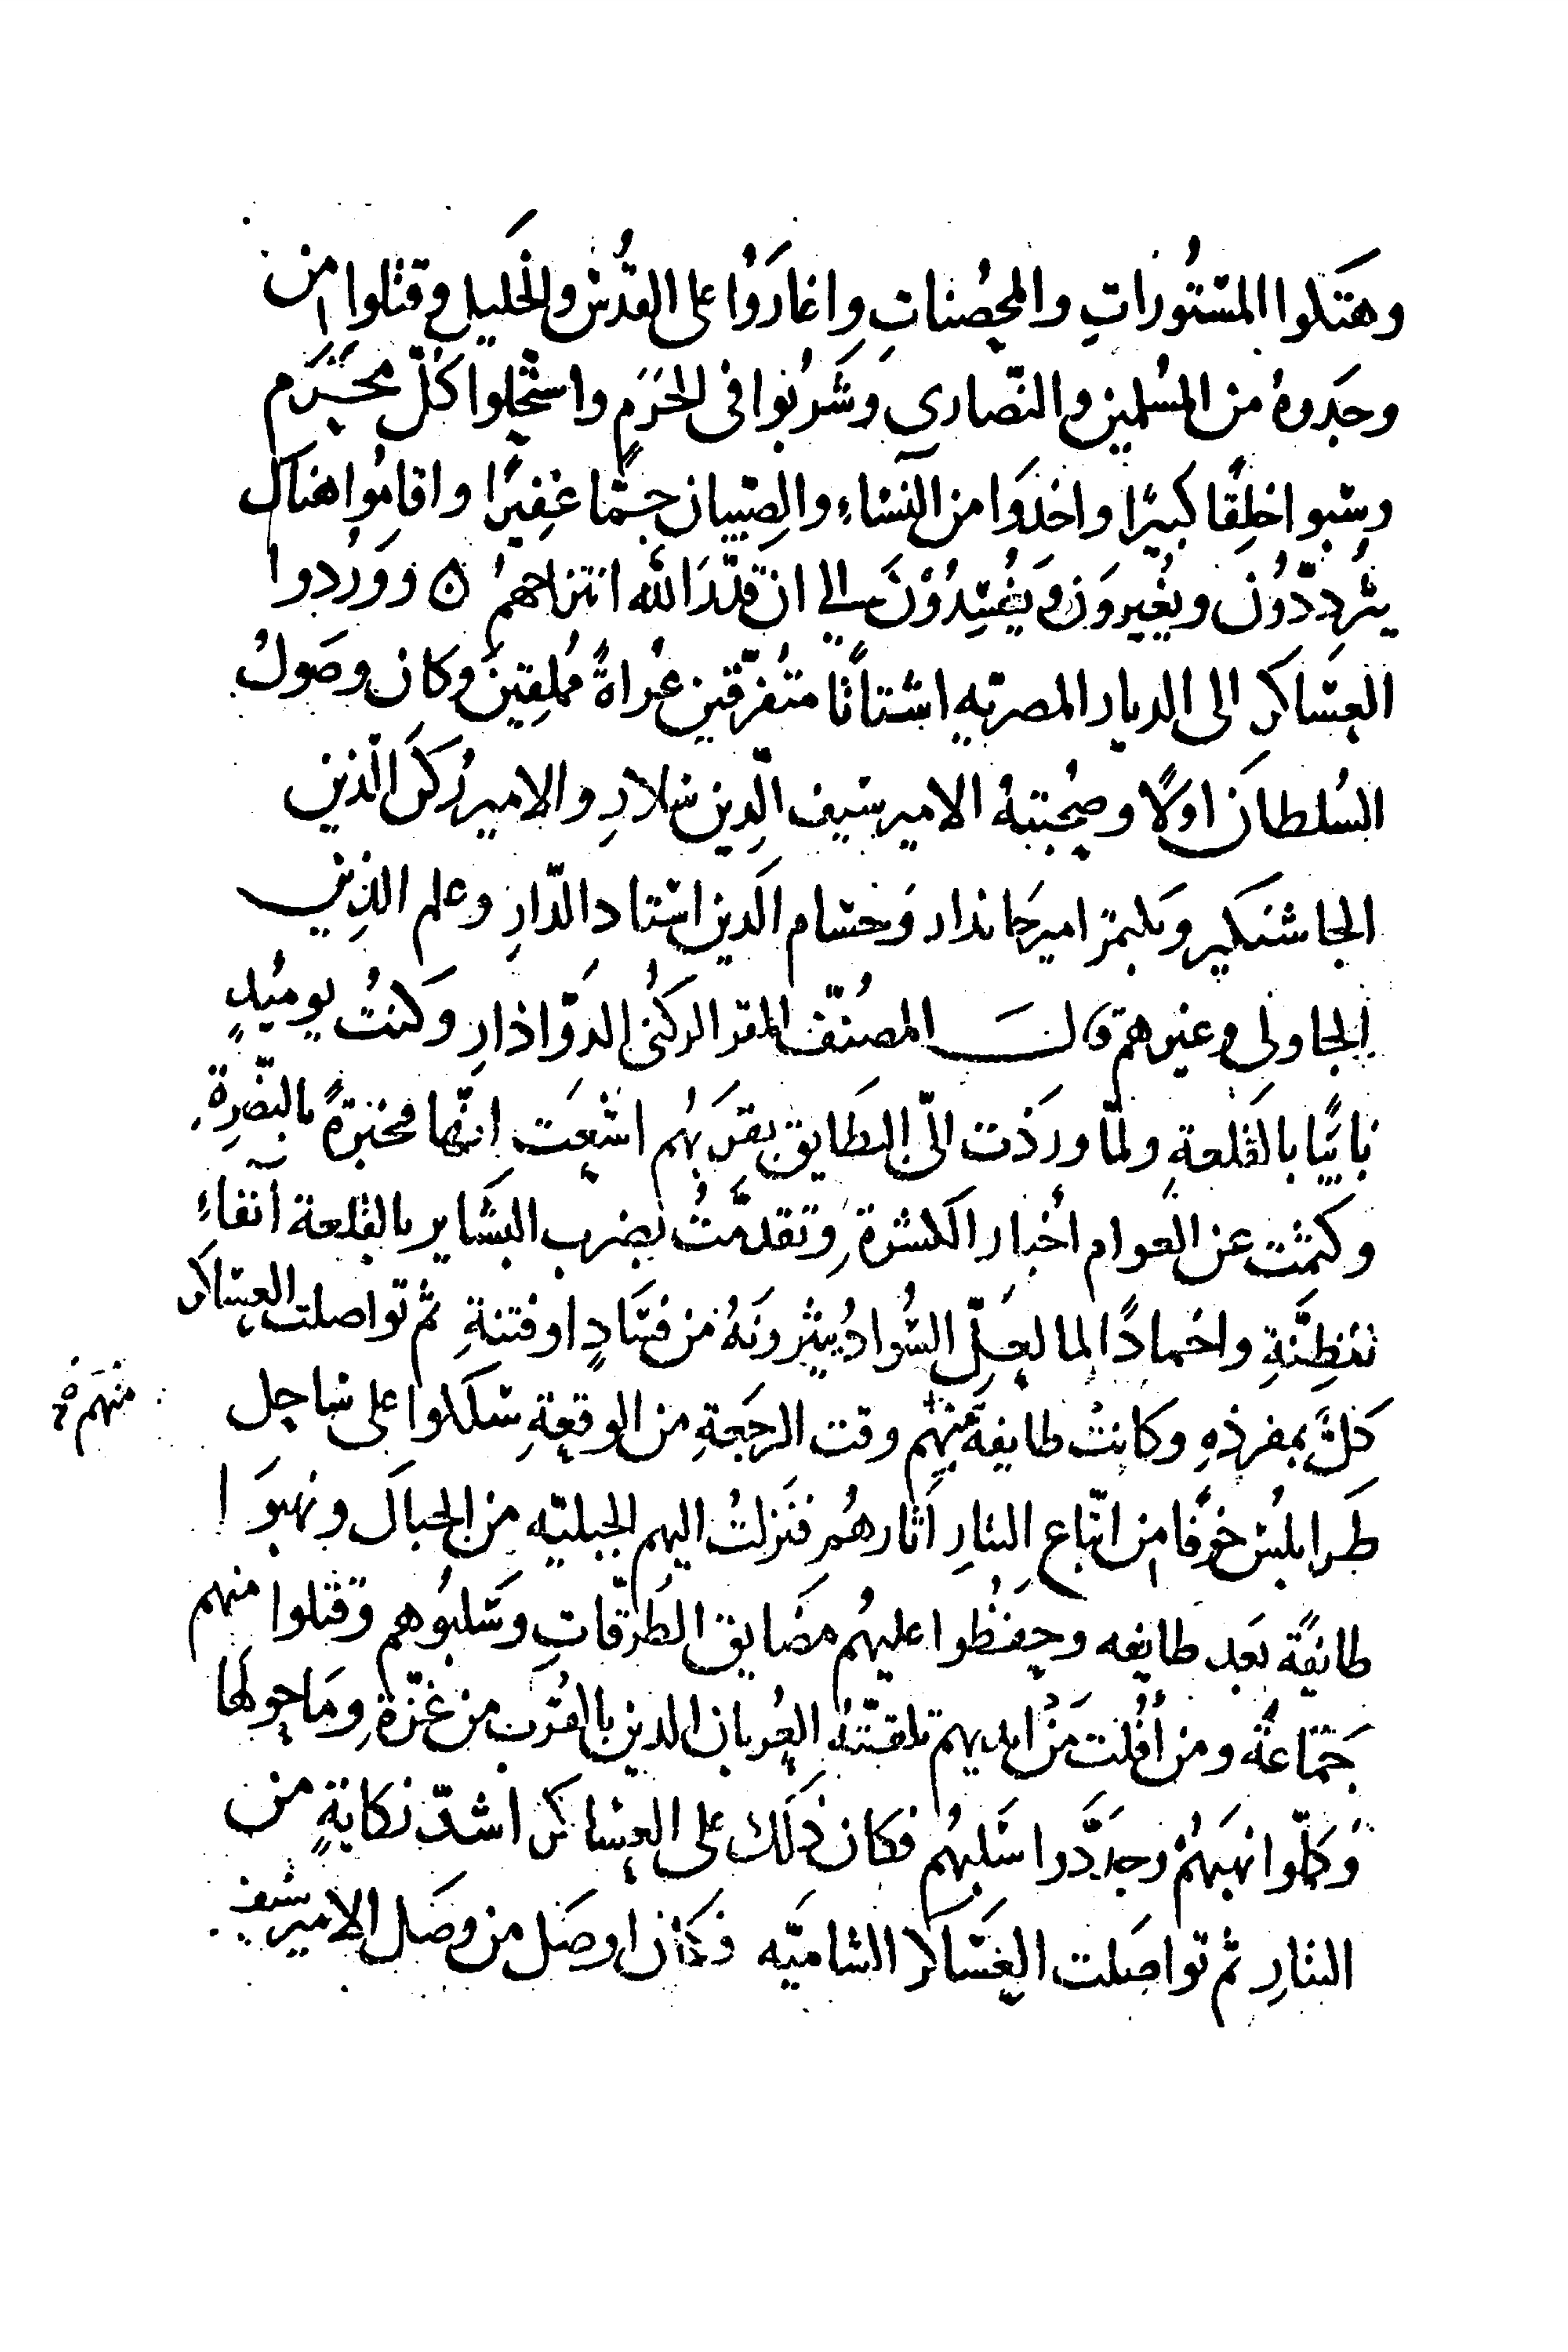 وهتكوا المستُوراتِ والمحصُناتِ واغارَوُا على القدُس والخَليل وقتلوا من
وجَدوهُ من المسُلمين والنّصارى وشَربُوا فى الحَرَمِ واستحَلوا كُلّ محَرَّم
وسَبوا خلقًا كبيرًا واخذَوا من النّسَاءِ والصِبيان جمّا غفِيرًا واقامُوا هناك
يترددّوُن ويغُيروَن ويفُسِدُوْنَ الى ان قدّرَ الله انتزاحهمُ ٥ ووَرُدوا
العسَاكر الى الديار المصريّه اشتاتًا متُفرّقين عُراةً مُملِقينَ وكان وصَولُ
السُلطان اولًا وصُحبتهُ الامير سَيف الّدِين سَلارِ والامير رُكن الّذين
الجاشنكير وبكتمر امير جَاندار وَحسَام الّدين استاد الدّارِ وعلم الدِين
الجاولى وغيرهم قال المصنُفّ المقر الركنُى الدوّاذارِ وكنتُ يوميُدٍ
نايبًا بالقلعةِ ولمّا ورَدت الىّ البطَايق بقرَبهُم اشعَت انّها مخبرةً بالنصّرةِ
وكتمت عن العوام أخبار الكسَرةِ وتقدمّتُ بضرب البشَاير بالقلعة آنفاءِ
للظِنّةِ واخمادًا لما لعَلّ السُّوادُ يثيرونَهُ من فسَادٍ او فتنةِ ثم تواصلت العسَاكر
كلٌّ بمفرذهِ وكانتْ طايفة منهم وقت الرجَعةِ من الوقعةِ سَلكوا على سَاحِل
منهم
طَرابلُسَ خوفًا من اتّباع التتارِ اثارهُم فنَزلتُ اليهم الجَبليّه من الجبال ونهبوَا
طايفًة بعَد طايفه وحِفظُوا عليهُم مضَايق الطُرقّاتِ وسَلبوُهم وقتلوا منهم
جمَاعةً ومن أفُلت مَنْ ايديهم تلقتّهُ العُربان الدين بالقُرب من غزّةِ ومَا حولَها
وَكمّلوا نهبَهُمْ وجدَّدوا سَلبهُم فكان ذلَك على العسَاكر اشدّ نكايةٍ من
التتارِ ثم تواصَلت العَسَاكر الشاميَّه فكان اوصَل من وصَل الامير سَيف